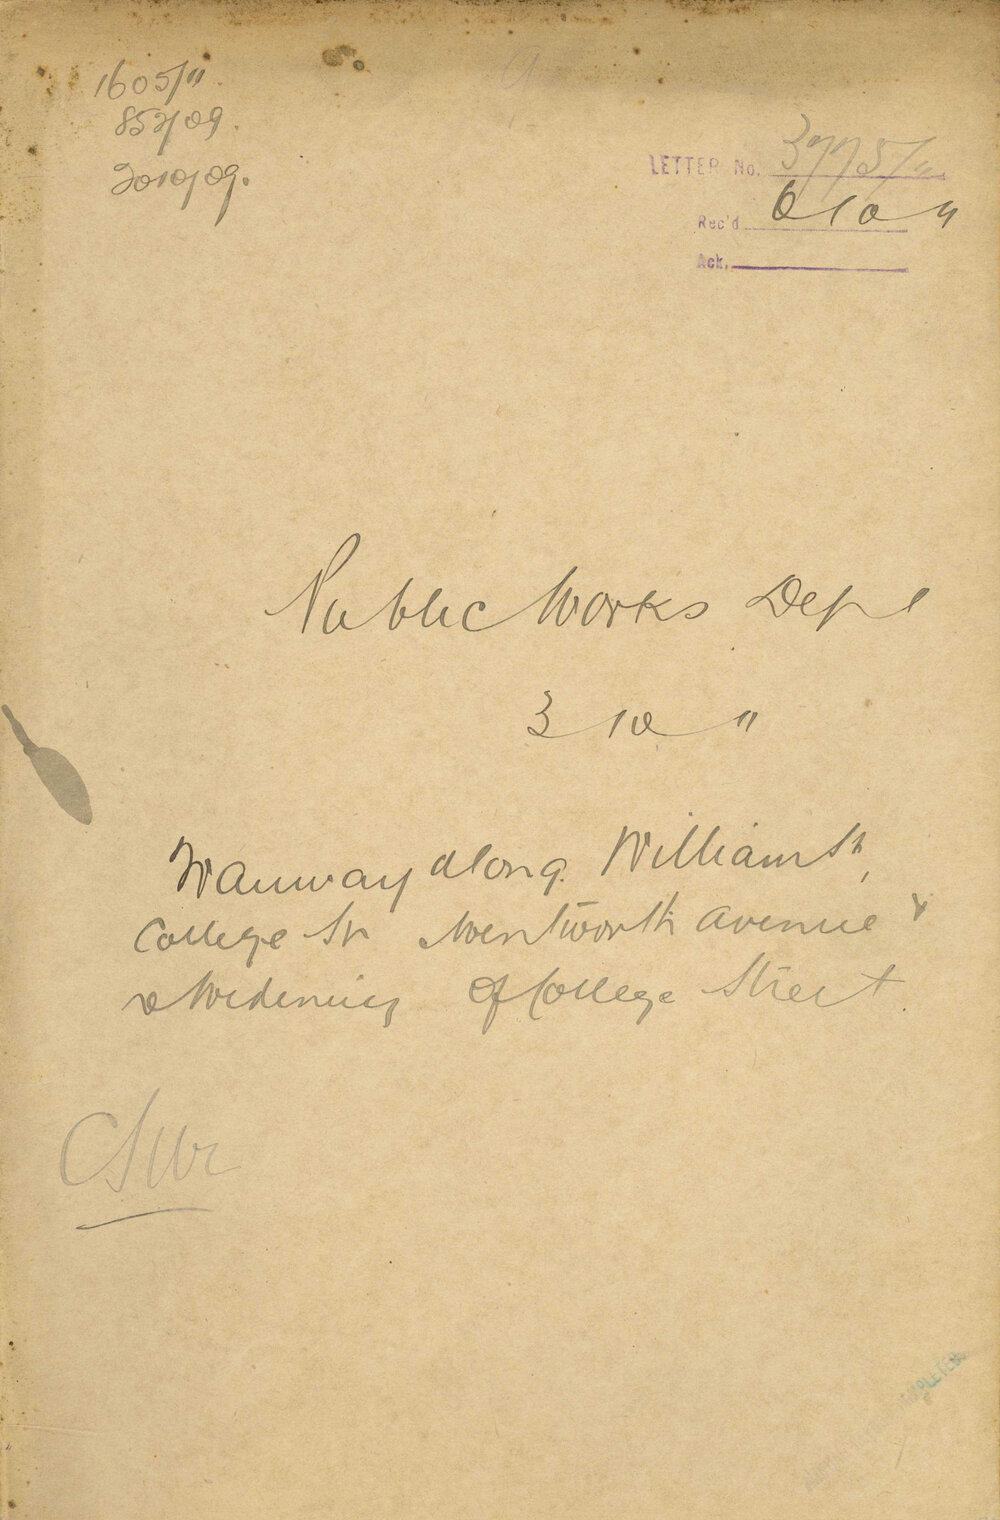 1605/11
852/09.
3010/09.
LETTER No. 3775/11
Rec'd 6 10 11
Ack.
Public Works Dept
3 10 11
Tramway along William St,
College St Wentworth Avenue
& Widening of College Street.